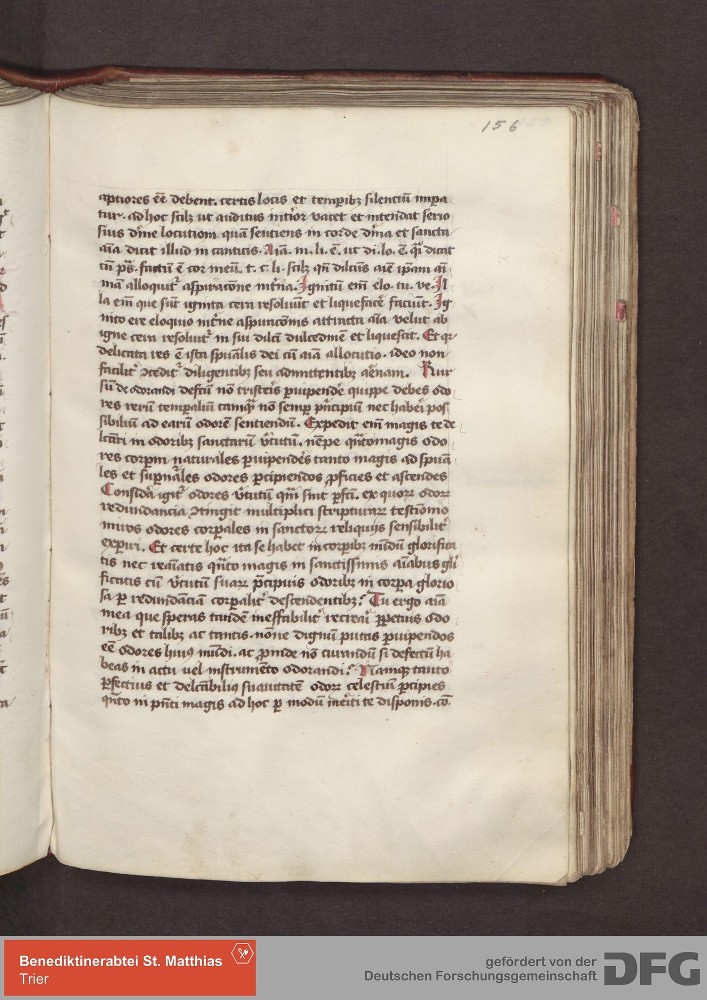 156
aptiores eē debent. certis locis et temꝑibꝫ silenciū impa
tur. ad hoc scilꝫ ut auditus int'ior vacet et intendat serio
sius dīne locutiom quā sentiens in corde dīna et sancta
aīa dicit illud in canticis. Aīa. m. li. ē. ut di. lo. ē. qȓ dicit
cū ps̄. factū ē cor meū. t. c. li. scilꝫ qn̄ dilcūs aīe ip̄am aī
mā alloquit᷑ aspiracōne int'ia. Ignitū em̄ elo. tu. ve. Il
la em̄ que sūt ignita cera resoluūt et liquefacē faciūt. Ig
nito ere eloquio int'ne aspiracōnis attracta aīa velut ab
igne cera resoluit᷑ in sui dilcī dulcedinē et liquescit. Et qꝛ
delicata res ē ista spūalis dei cū aīa allocutio. ideo non
facilit᷑ ꝯcedit᷑ diligentibꝫ seu admittentibꝫ aēnam. Rur
sū de odorandi defctū nō tristeris ꝑuipendē quippe debes odo
res rerū temꝑaliū tamqꝫ nō semꝑ pn̄cipiū nec haberi pos
sibiliū ad earū odorē sentiendū. Expedit em̄ magis te de
lcāri in odoribꝫ sanctarū v̓tutū. nēpe qn̄to magis odo
res corpom naturales ꝑuipendes tanto magis ad spūa
les et suꝑnales odores ꝑcipiendos ꝓficies et ascendes
Considā igit᷑ odores v̓tutū qm̄ sint ꝑfcī. ex quoꝝ odoꝝ
redundancia ꝯtingit multiplici scripturaꝝ testīomo
nuvos odores corꝑales in sanctoꝝ reliquijs sensibilit᷑
exꝑiri. Et certe hoc ita se habet in corꝑibꝫ nōdū glorifica
tis nec reaīatis qn̄to magis in sanctissimis aīabus glī
ficatis cū v̓tutū suaꝝ p̄cipuis odoribꝫ in corꝑa glorio
sa ꝑ redundāciā corꝑalit᷑ descendentibꝫ? Tu ergo aīa
mea que speras tandē ineffabilit᷑ recreari ꝑpetuis odo
ribꝫ et talibꝫ ac tantis. nōne dignū putas ꝑuipendos
eē odores huiꝰ mūdi. ac ꝓinde nō curandū si defectū ha
beas in actu vel instrumēto odorandi? Namqꝫ tanto
ꝑfectius et delcābiliꝰ suauitatē odoꝝ celestiū ꝑcipies
qn̄to in pn̄ti magis ad hoc ꝑ modū meriti te disponis. cō
Benediktinerabtei St. Matthias
Trier
gefördert von der
Deutschen Forschungsgemeinschaft
DFG